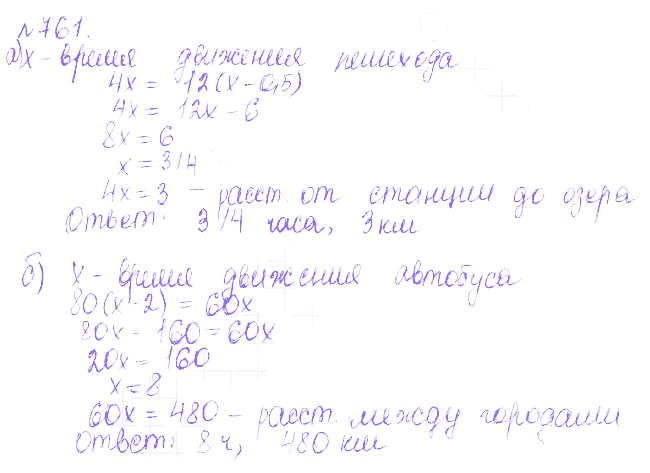 №761.
а) х - время движения пешехода
4х = 12(х - 0,5)
4х = 12х - 6
8х = 6
х = 3/4
4х = 3 - расст. от станции до озера
Ответ: 3/4 часа, 3км
б) х - время движения автобуса
80(х - 2) = 60х
80х - 160 = 60х
20х = 160
х = 8
60х = 480 - расст. между городами
Ответ: 8 ч, 480 км